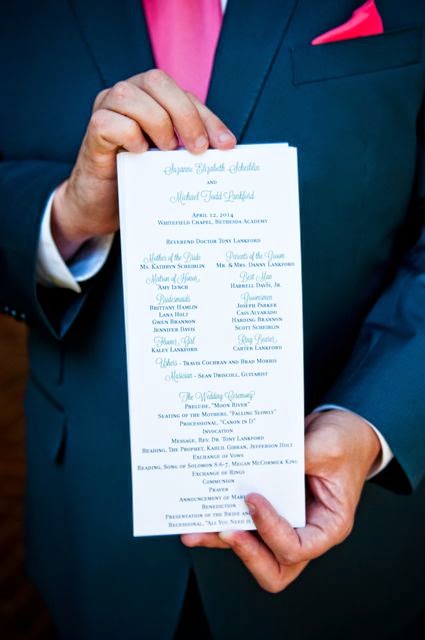 Suzanne Elizabeth Scheiblin
and
Michael Todd Lankford
April 12, 2014
Whitefield Chapel, Bethesda Academy
Reverend Doctor Tony Lankford
Mother of the Bride
Ms. Kathryn Scheiblin
Matron of Honor
Amy Lynch
Bridesmaids
Brittany Hamlin
Lana Holt
Gwen Brannon
Jennifer Davis
Flower Girl
Kaley Lankford
Parents of the Groom
Mr. & Mrs. Danny Lankford
Best Man
Harrell Davis, Jr.
Groomsmen
Joseph Parker
Cass Alvarado
Harding Brannon
Scott Scheiblin
Ring Bearer
Carter Lankford
Ushers - Travis Cochran and Brad Morris
Musician - Sean Driscoll, Guitarist
The Wedding Ceremony
Prelude, "Moon River"
Seating of the Mothers, "Falling Slowly"
Processional, "Canon in D"
Invocation
Message, Rev. Dr. Tony Lankford
Reading, The Prophet, Kahlil Gibran, Jefferson Holt
Exchange of Vows
Reading, Song of Solomon 8:6-7, Megan McCormick King
Exchange of Rings
Communion
Prayer
Announcement of
Benediction
Presentation of the Bride and
Recessional, "All You Need is